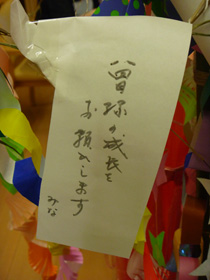 曾孫の成長を
お願いします
みな